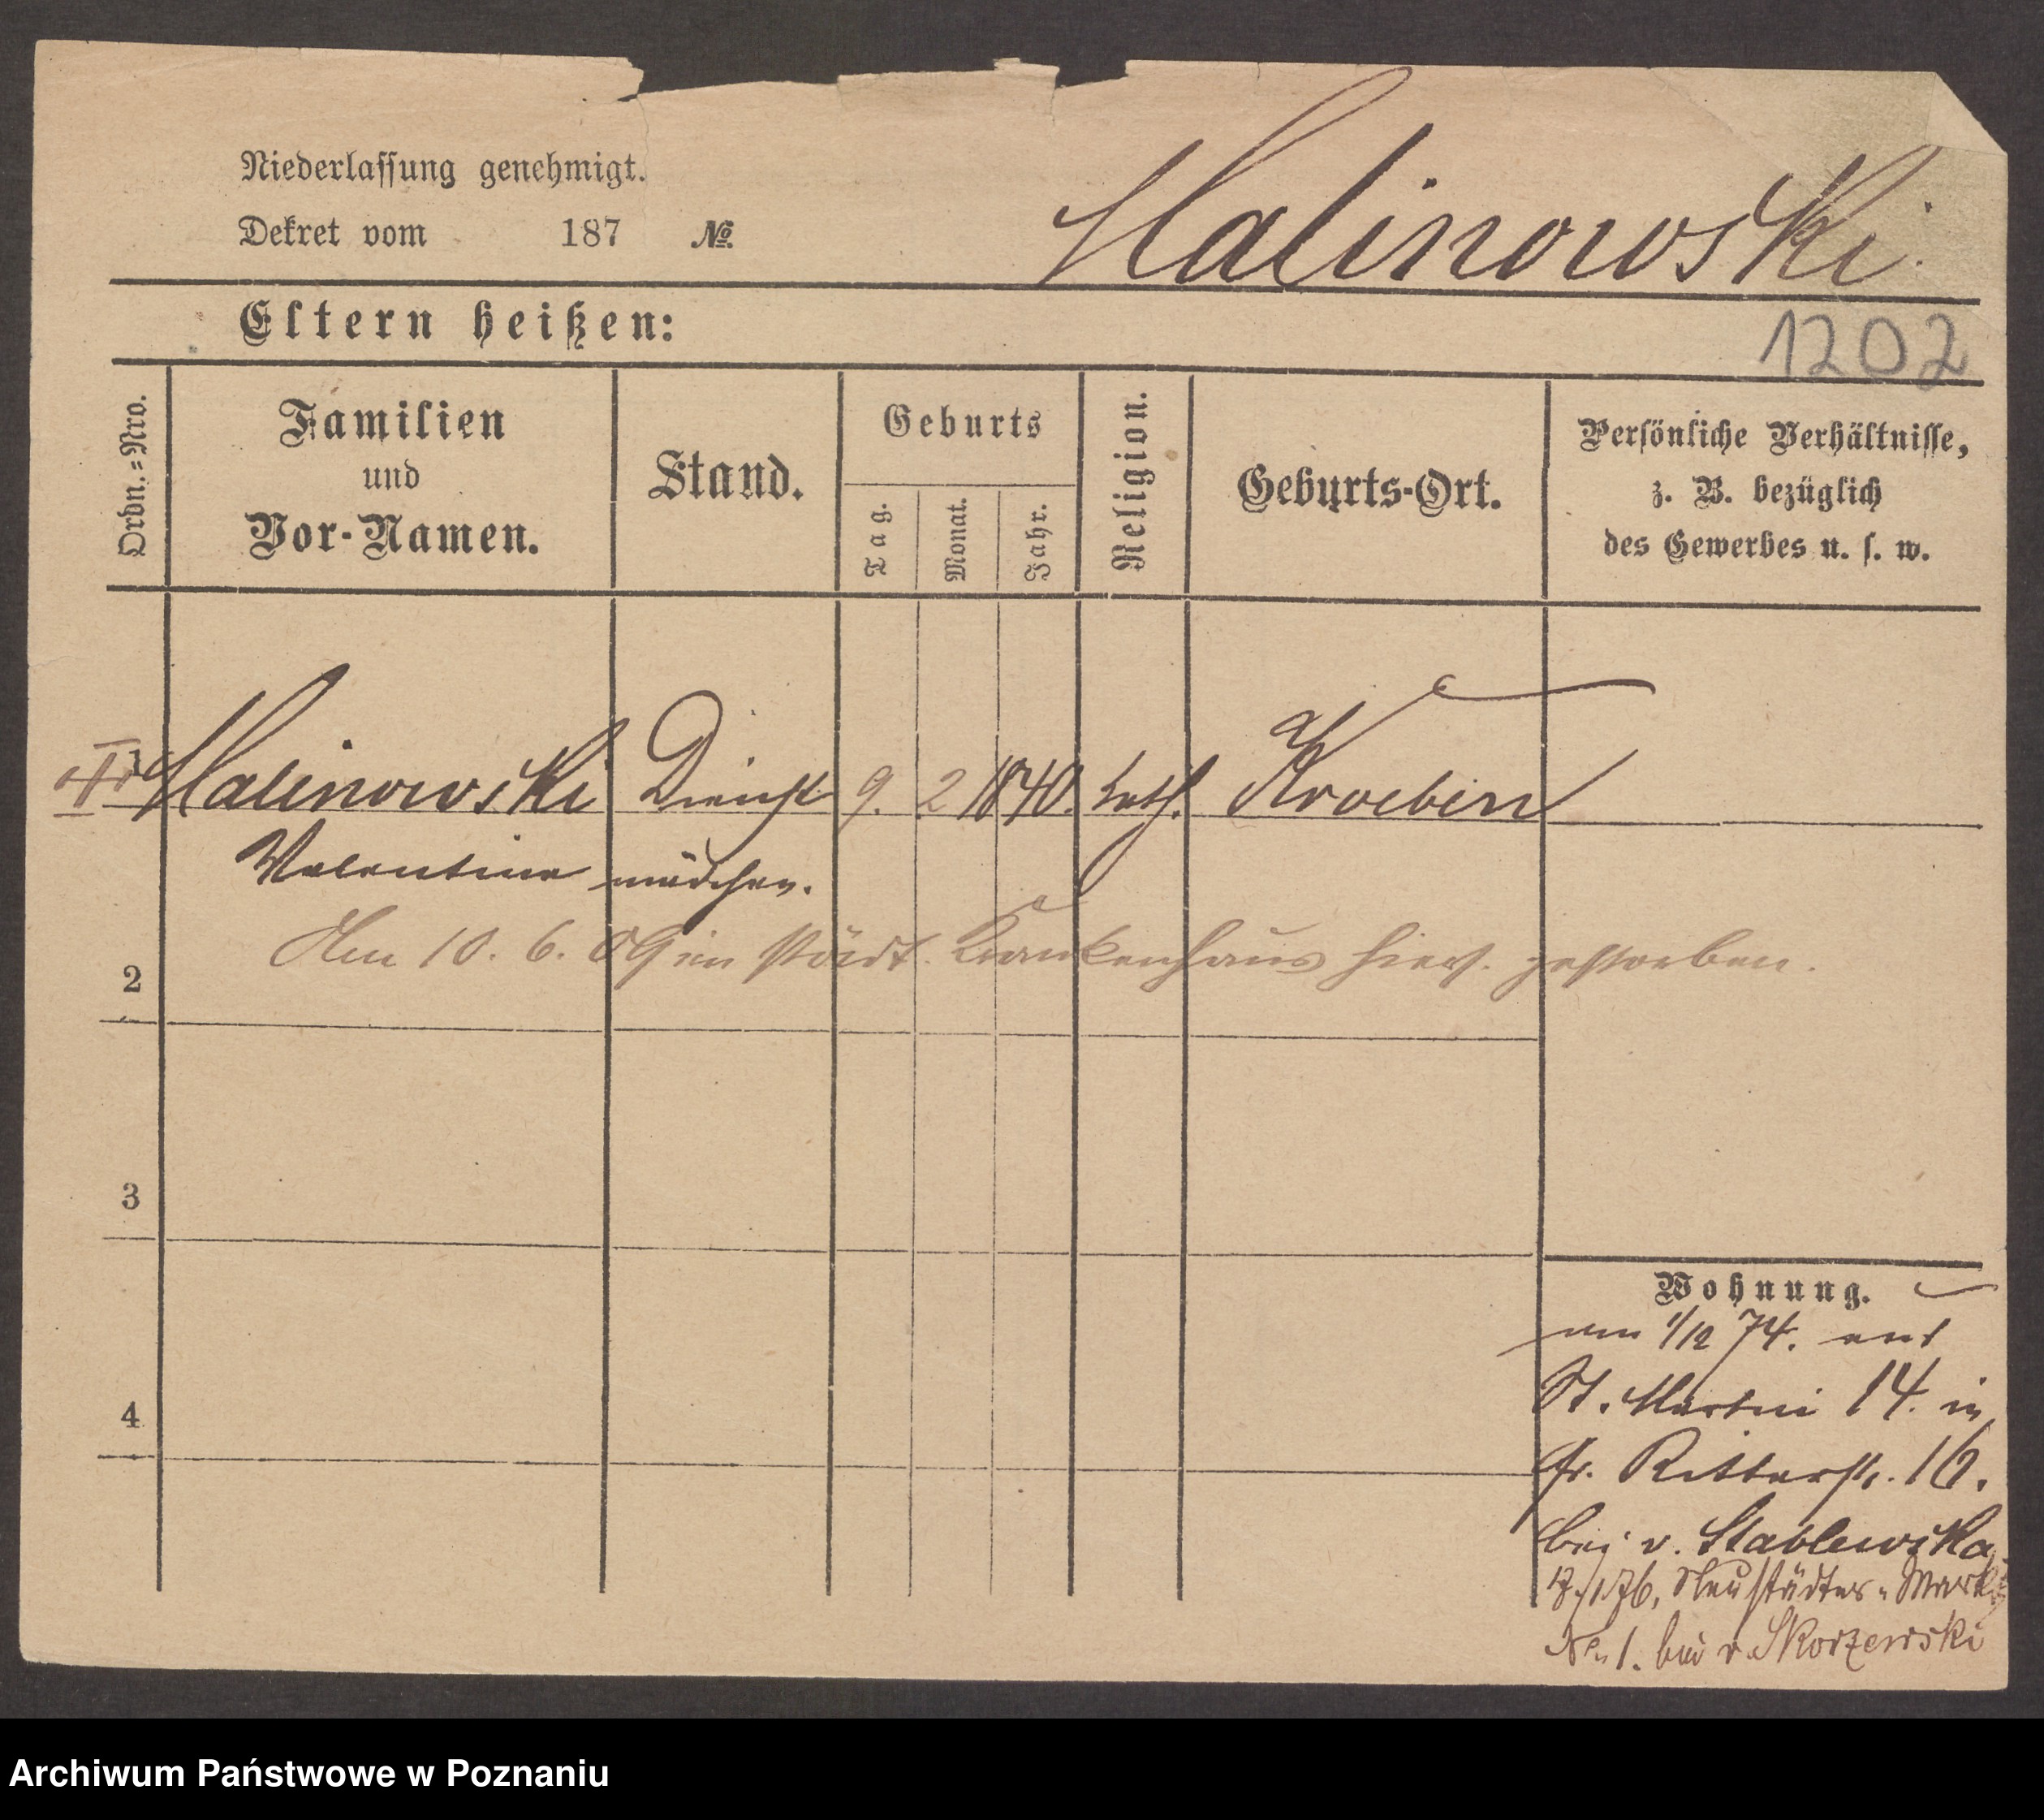 Niederlassung genehmigt.
Dekret vom 187 №
Malinowski.
Eltern heißen:
1202
Ordn.=Nro.
Familien
und
Vor-Namen.
Stand.
Geburts
Tag.
Monat.
Jahr.
Religion.
Geburts-Ort.
Persönliche Verhältnisse,
z. B. bezüglich
des Gewerbes u. s. w.
1 Malinowski Dienst 9. 2 1840. kath. Kroeben
Valentine mädchen.
Am 10. 6. 09 im städt. Krankenhaus hiers. gestorben.
2
3
4
Wohnung.
am 1/12 74. aus
St. Martin 14. in
gr. Ritterstr. 16.
bei v. Stablewska,
Neustädter-Markt
No. 1. bei v. Skorzewski
Archiwum Państwowe w Poznaniu